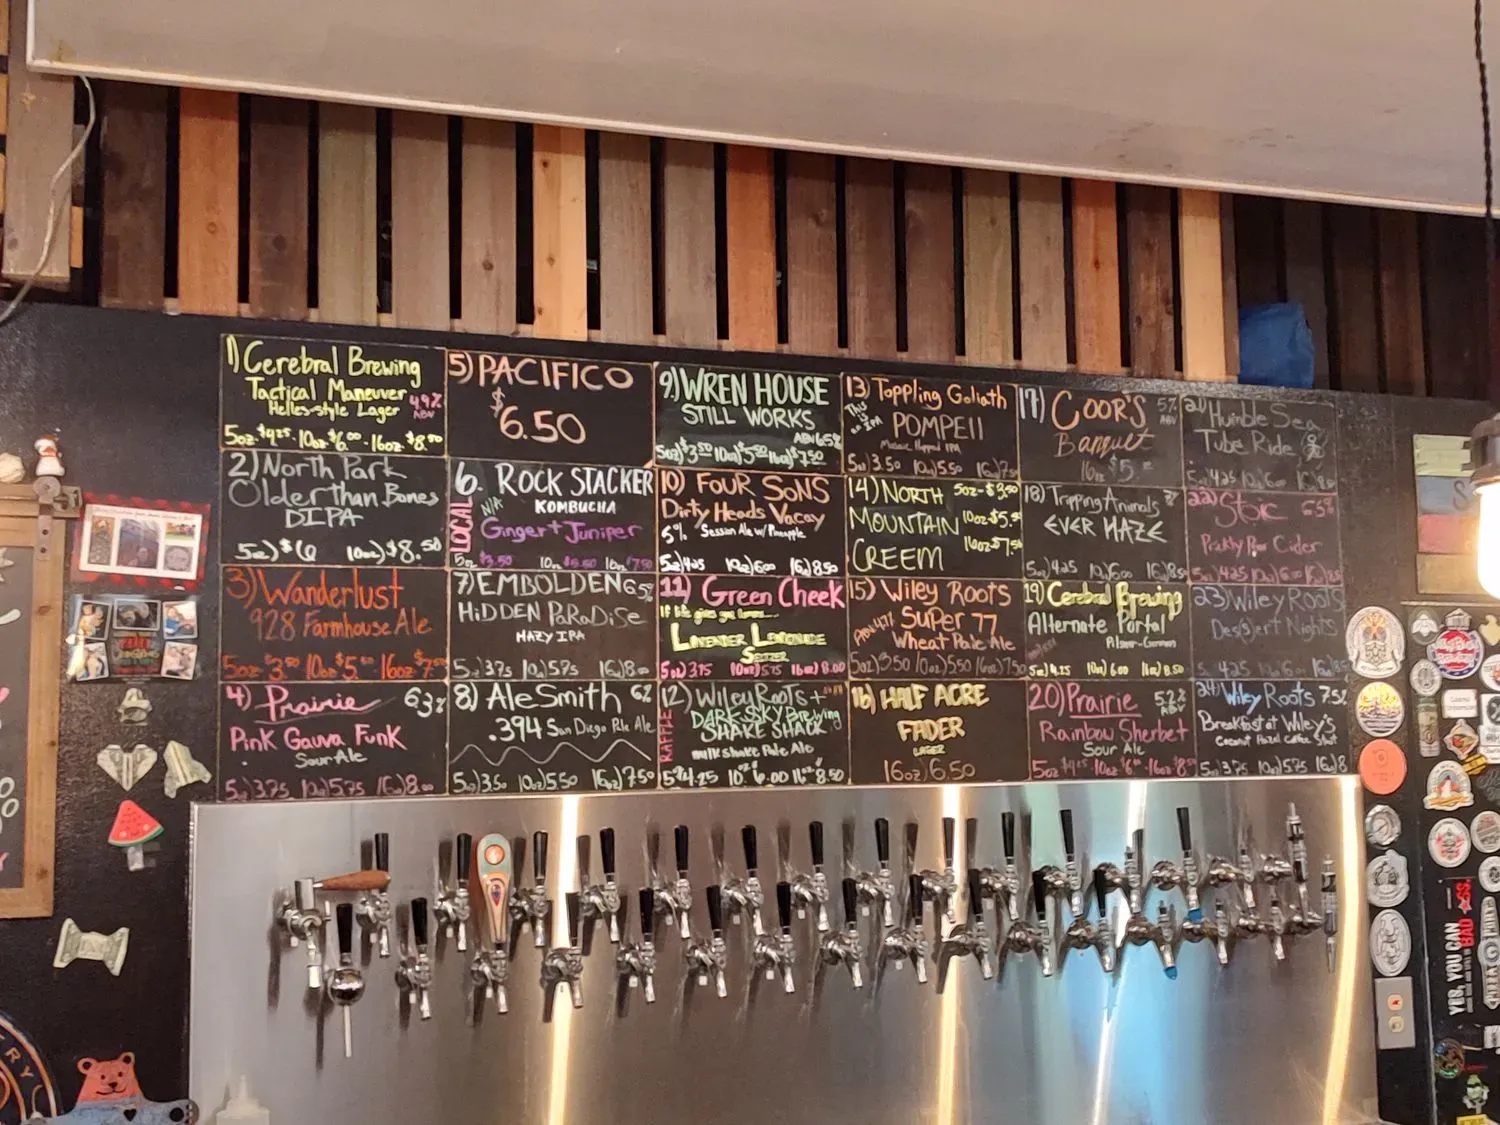 1) Cerebral Brewing
Tactical Maneuver
Helles-style Lager
4.9%
ABV
5oz $4.25 · 10oz $6.00 · 16oz $8.50
2) North Park
Older than Bones
DIPA
5oz) $6 10oz) $8.50
3) Wanderlust
928 Farmhouse Ale
5oz $3.50 10oz $5.50 16oz $7.50
4) Prairie 6.3%
Pink Gauva Funk
Sour Ale
5oz) 3.75 10oz) 5.75 16oz) 8.00
5) PACIFICO
$6.50
6. ROCK STACKER
LOCAL
N/A
KOMBUCHA
Ginger + Juniper
5oz $3.50 10oz $5.50 16oz $7.50
7) EMBOLDEN 6.5%
HiDDEN PaRaDiSe
HAZY IPA
5oz) 3.75 10oz) 5.75 16oz) 8.00
8) AleSmith 6%
.394 San Diego Pale Ale
5oz) 3.50 10oz) 5.50 16oz) 7.50
9) WREN HOUSE
STILL WORKS
ABV 6.5%
5oz) $3.50 10oz) $5.50 16oz) $7.50
10) FOUR SONS
Dirty Heads Vacay
5% Session Ale w/ Pineapple
5oz) 4.25 10oz) 6.00 16oz) 8.50
11) Green Cheek
If life gives you lemons...
LAVENDER LEMONADE
SELTZER
5oz) 3.75 10oz) 5.75 16oz) 8.00
12) Wiley Roots +
DARK SKY Brewing
SHAKE SHACK
milk shake Pale Ale
5oz 4.25 10oz 6.00 16oz 8.50
13) Toppling Goliath
This is an IPA
POMPEII
Mosaic Hopped IPA
5oz) 3.50 10oz) 5.50 16oz) 7.50
14) NORTH
MOUNTAIN
CREEM
5oz - $3.50
10oz $5.50
16oz $7.50
15) Wiley Roots
SUPER 77
ABV 4.77
Wheat Pale Ale
5oz) 3.50 10oz) 5.50 16oz) 7.50
16) HALF ACRE
FADER
LAGER
16oz) 6.50
17) COOR'S
5%
ABV
Banquet
16oz $5
18) Tripping Animals
EVER HAZE
5oz) 4.25 10oz) 6.00 16oz) 8.50
19) Cerebral Brewing
Alternate Portal
Pilsner-German
5oz) 4.25 10oz) 6.00 16oz) 8.50
20) Prairie
5.2%
ABV
Rainbow Sherbet
Sour Ale
5oz $4.25 · 10oz $6.00 · 16oz $8.50
21) Humble Sea
Tube Ride
5oz) 4.25 10oz) 6.00
22) Stoic 6.5%
Prickly Pear Cider
5oz) 4.25 10oz) 6.00 16oz) 8.50
23) Wiley Roots
Des(s)ert Nights
5oz) 4.25 10oz) 6.00
24) Wiley Roots 7.5%
Breakfast at Wiley's
Coconut Hazel Coffee Stout
5oz) 3.75 10oz) 5.75 16oz) 8
YES, YOU CAN